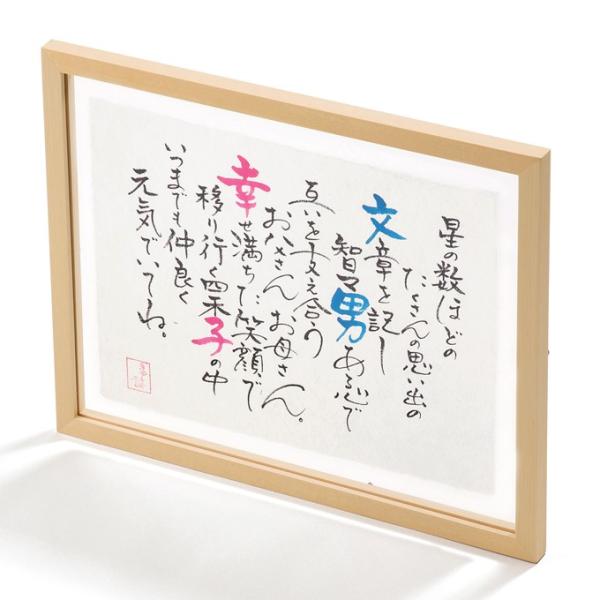 星の数ほどの
たくさんの思い出の
文章を記し
智マ男ある心で
互いを支え合う
お父さん、お母さん。
幸せ満ちた笑顔で
移り行く四季子の中
いつまでも仲良く
元気でいてね。